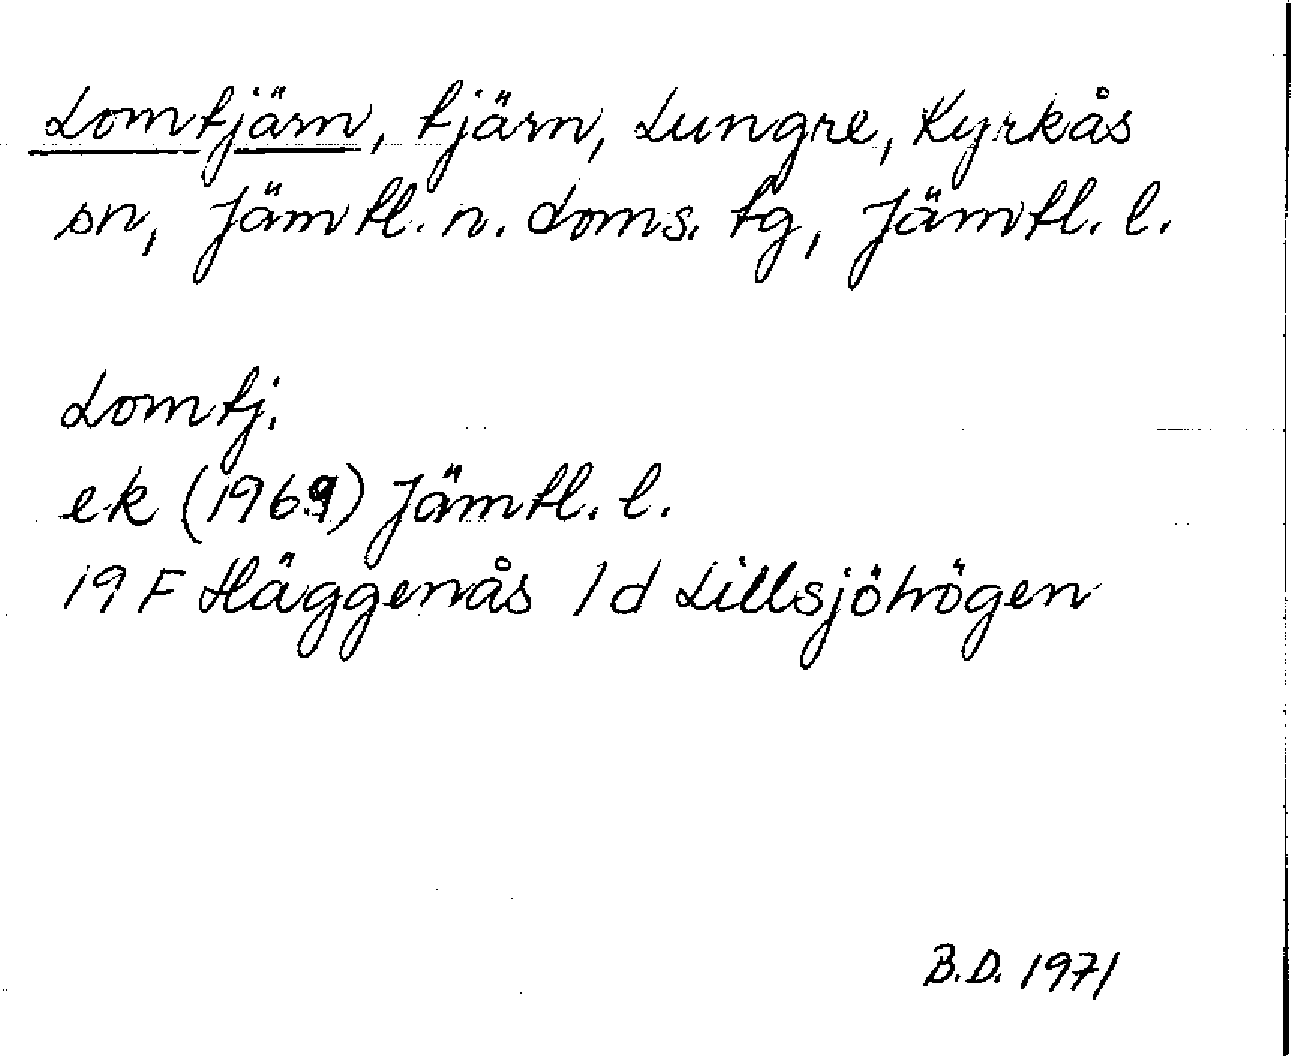 Lomtjärn, tjärn, Lungre, Kyrkås
sn, Jämtl. n. doms. tg, Jämtl. l.
Lomtj.
ek (1969) Jämtl. l.
19 F Häggenås 1d Lillsjöhögen
B.D. 1971